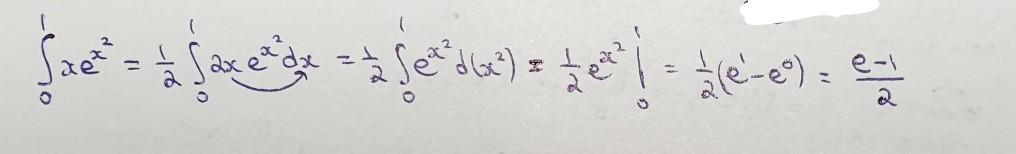 ∫₀¹ xe^{x²} = 1/2 ∫₀¹ 2x e^{x²} dx = 1/2 ∫₀¹ e^{x²} d(x²) = 1/2 e^{x²} |₀¹ = 1/2 (e¹ - e⁰) = (e-1)/2